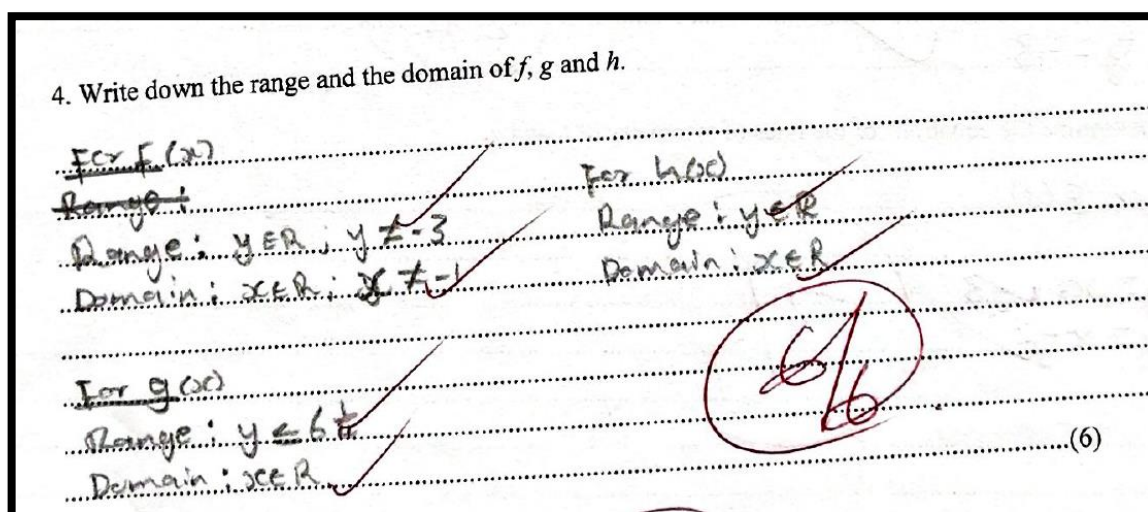 4. Write down the range and the domain of f, g and h.
For f(x)
Range :
Range : y ∈ R ; y ≠ -3
Domain : x ∈ R ; x ≠ -1
For g(x)
Range : y ≤ 6 1/4
Domain : x ∈ R
For h(x)
Range : y ∈ R
Domain : x ∈ R
6/6
(6)